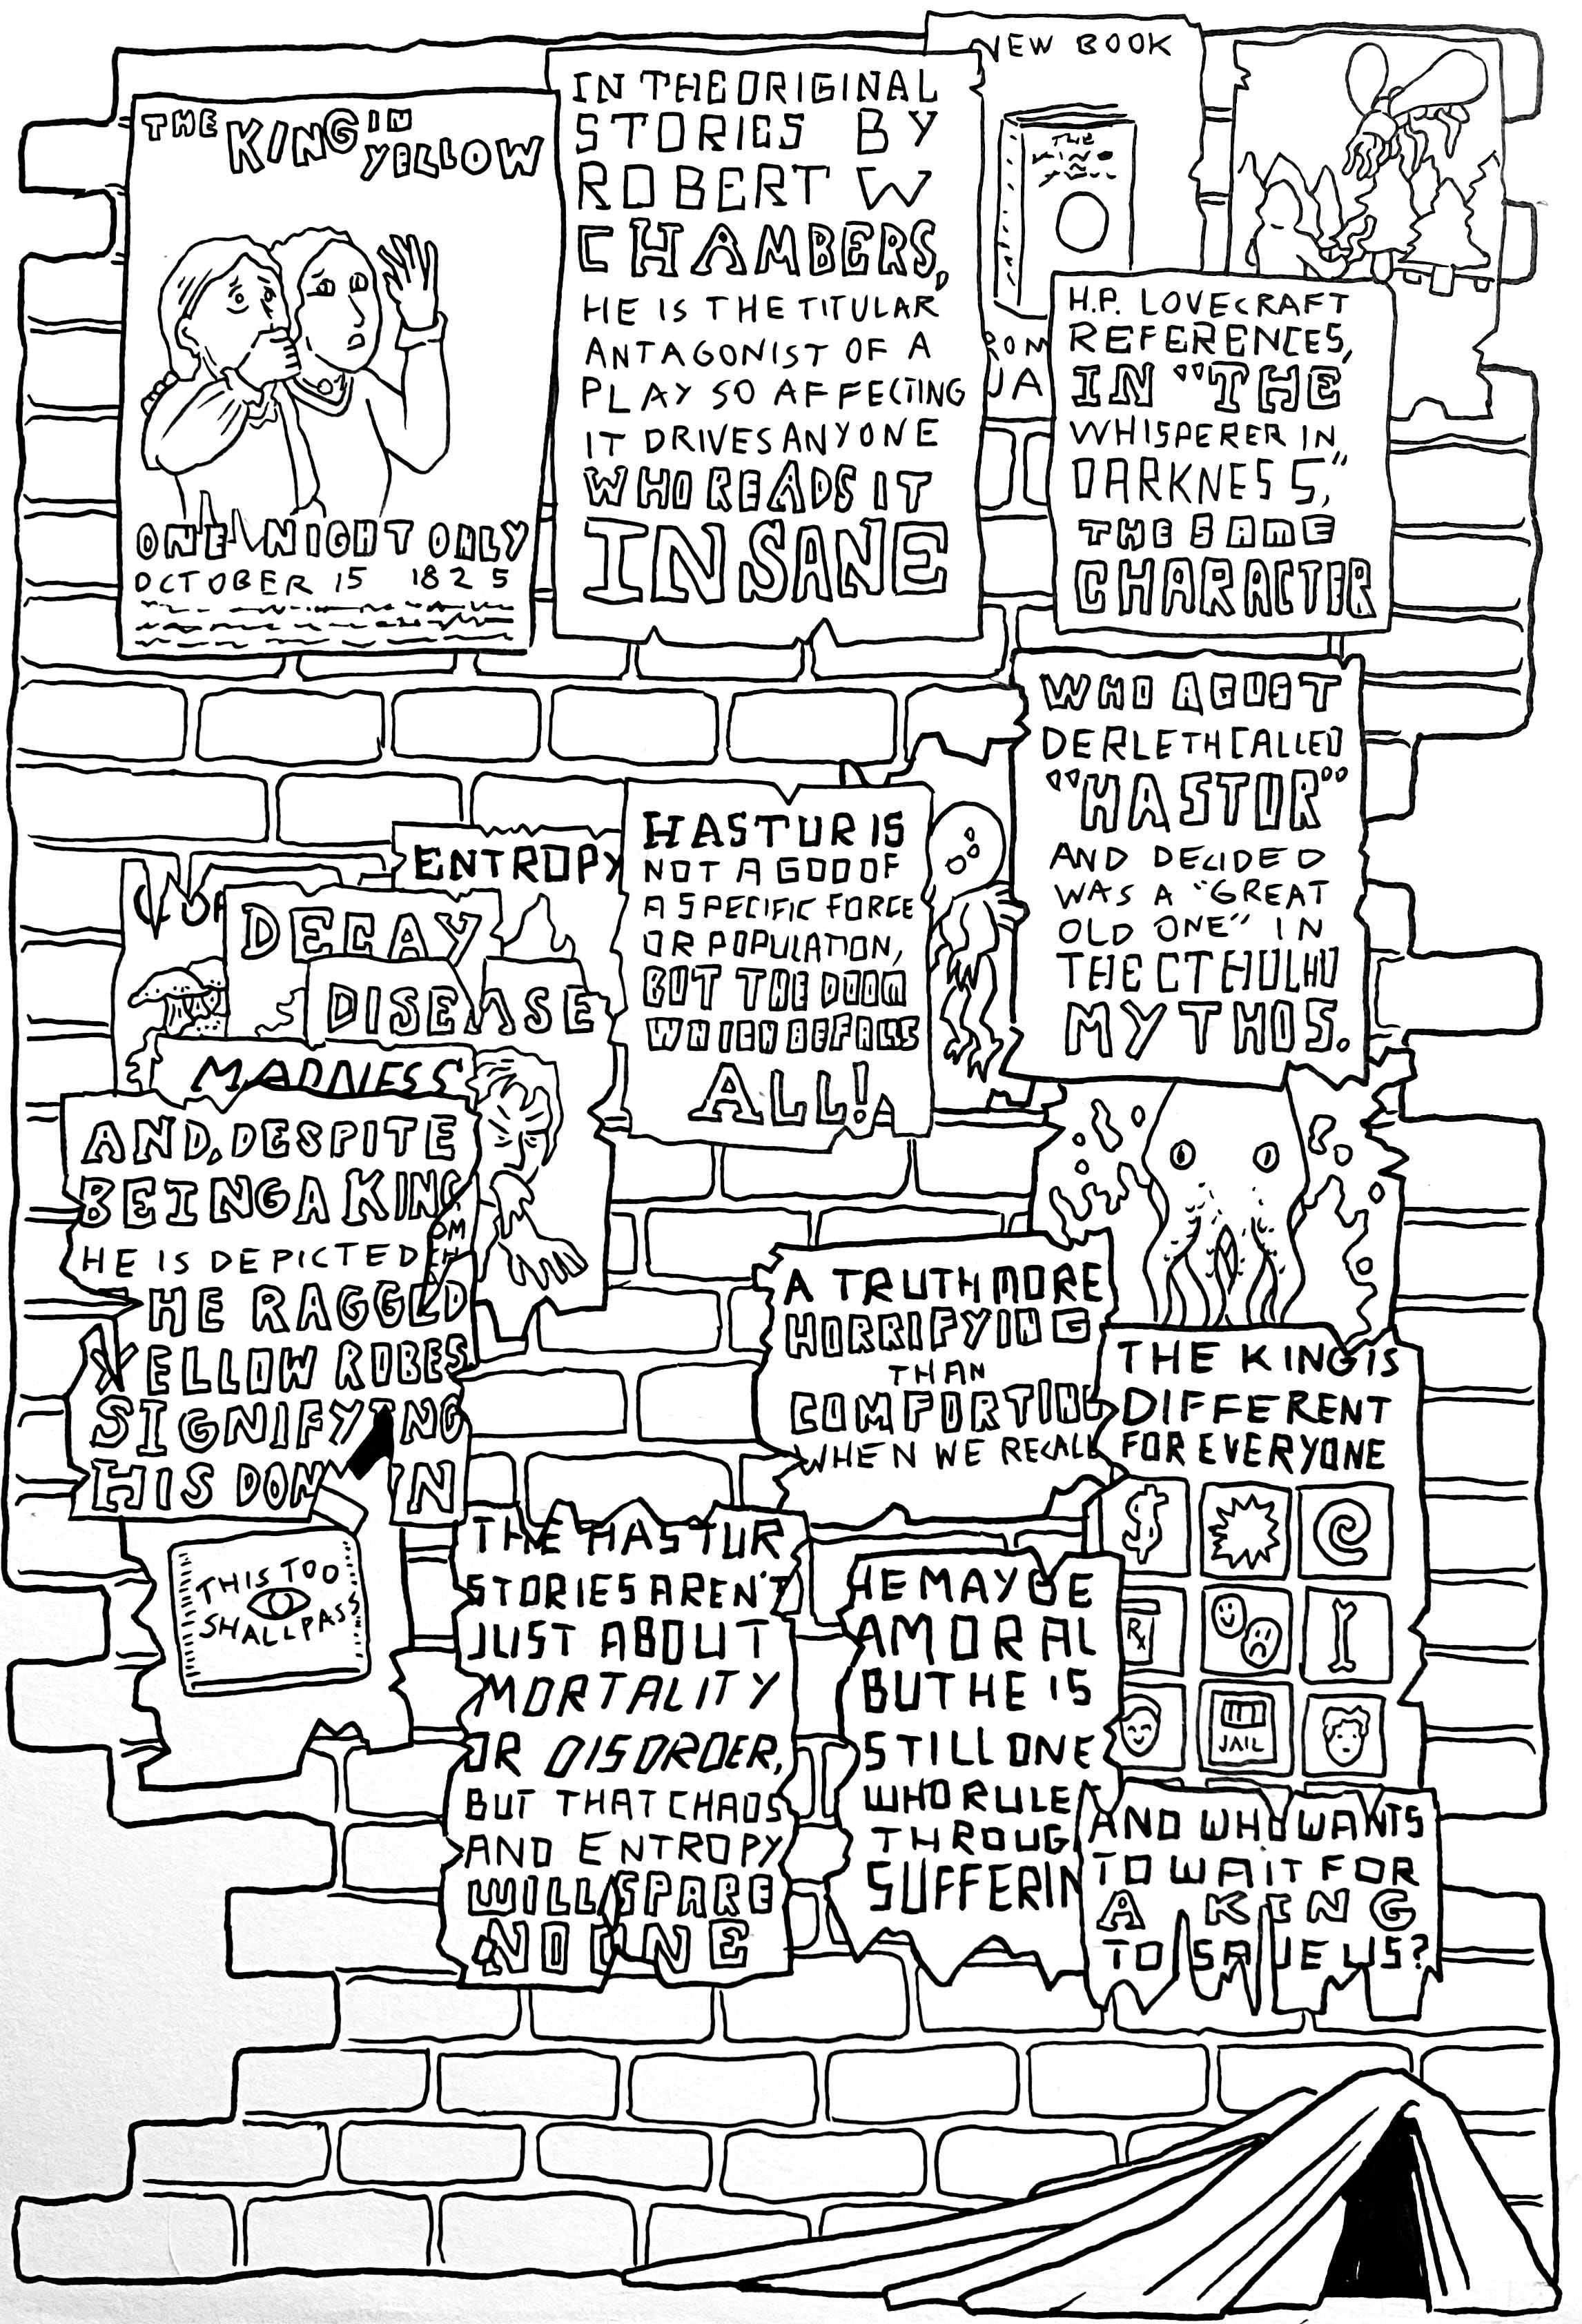 THE KING IN YELLOW
ONE NIGHT ONLY
OCTOBER 15 1825
IN THE ORIGINAL
STORIES BY
ROBERT W
CHAMBERS,
HE IS THE TITULAR
ANTAGONIST OF A
PLAY SO AFFECTING
IT DRIVES ANYONE
WHO READS IT
INSANE
NEW BOOK
THE
H.P. LOVECRAFT
REFERENCES,
IN "THE
WHISPERER IN
DARKNESS,"
THE SAME
CHARACTER
WHO AGUST
DERLETH CALLED
"HASTUR"
AND DECIDED
WAS A "GREAT
OLD ONE" IN
THE CTHULHU
MYTHOS.
HASTUR IS
NOT A GOD OF
A SPECIFIC FORCE
OR POPULATION,
BUT THE DOOM
WHICH BEFALLS
ALL!
ENTROPY
DECAY
DISEASE
MADNESS
AND, DESPITE
BEING A KING
HE IS DEPICTED
THE RAGGED
YELLOW ROBES
SIGNIFYING
HIS DOM IN
THIS TOO
SHALL PASS
THE HASTUR
STORIES AREN'T
JUST ABOUT
MORTALITY
OR DISORDER,
BUT THAT CHAOS
AND ENTROPY
WILL SPARE
NO ONE
A TRUTH MORE
HORRIFYING
THAN
COMFORTING
WHEN WE RECALL
THE KING IS
DIFFERENT
FOR EVERYONE
$
RX
JAIL
HE MAY BE
AMORAL
BUT HE IS
STILL ONE
WHO RULE
THROUG
SUFFERIN
AND WHO WANTS
TO WAIT FOR
A KING
TO SAVE US?